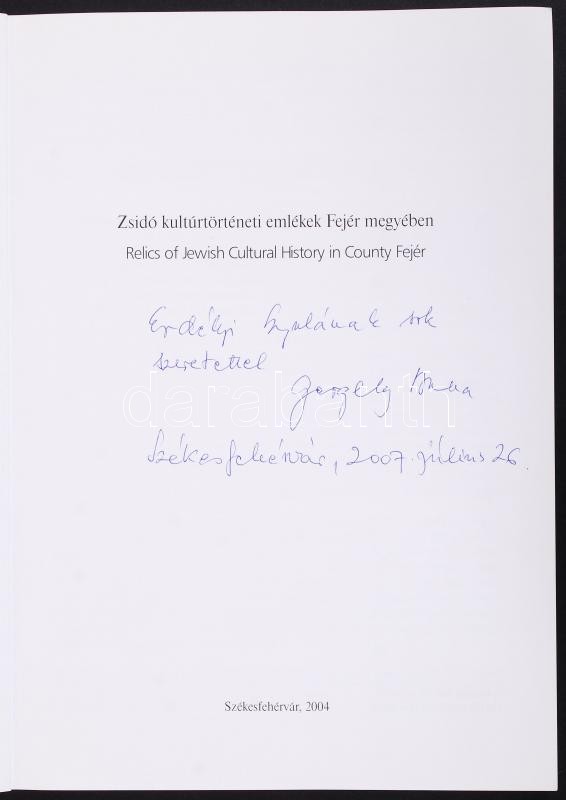 Zsidó kultúrtörténeti emlékek Fejér megyében
Relics of Jewish Cultural History in County Fejér
Erdélyi Gyulának sok
szeretettel
Gergely Anna
Székesfehérvár, 2007. július 26.
darabanth
Székesfehérvár, 2004